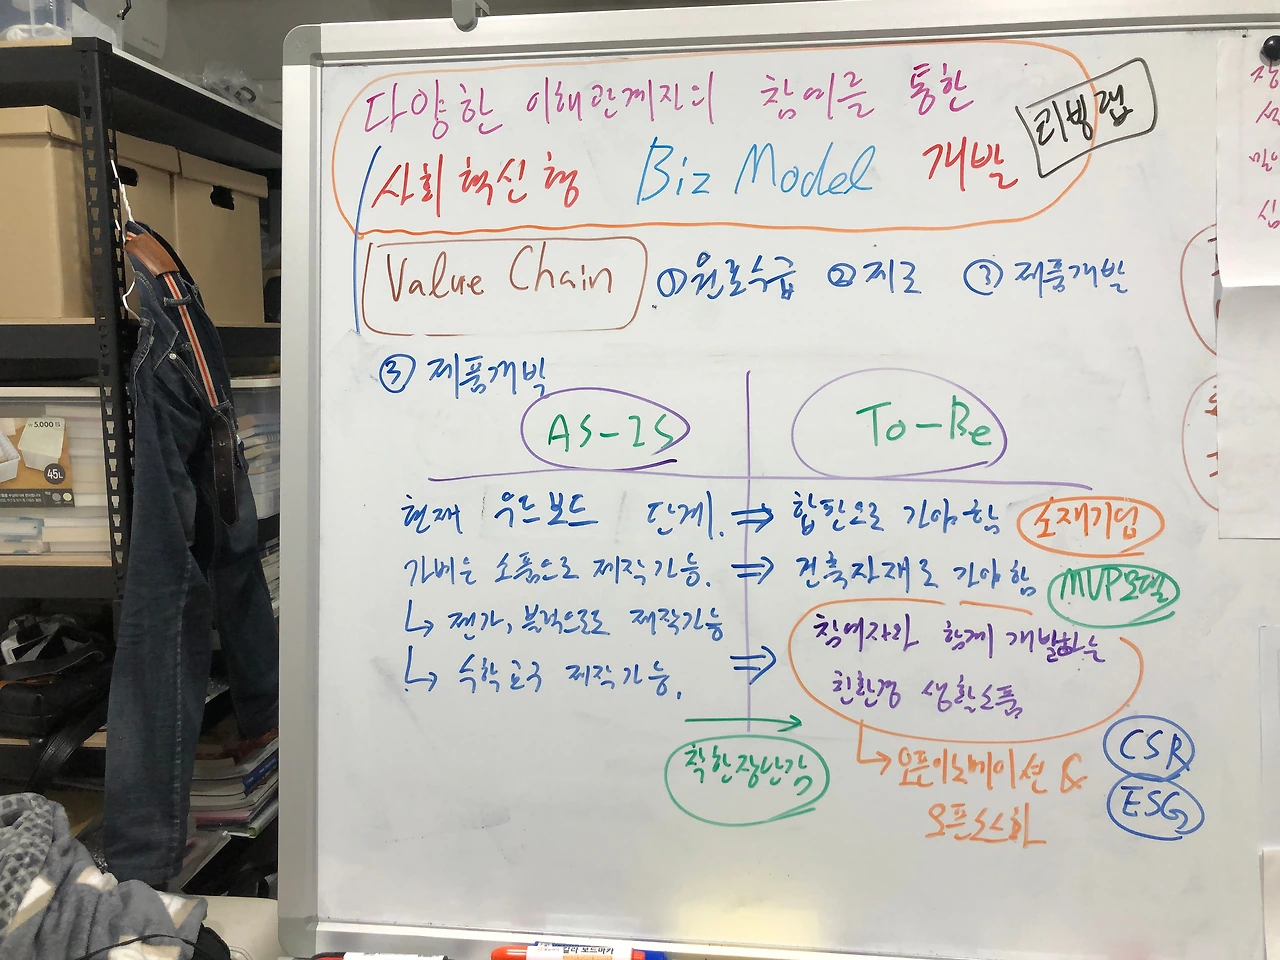 다양한 이해관계자의 참여를 통한
사회혁신형 Biz Model 개발
리빙랩
Value Chain ①원료수급 ②제조 ③제품개발
③ 제품개발
AS-IS
To-Be
현재 우드보드 단계. ⇒ 합판으로 가야함 소재기업
가벼운 소품으로 제작가능. ⇒ 건축자재로 가야함 MVP모델
↳ 젠가, 블럭으로도 제작가능
↳ 수학교구 제작가능. ⇒ 참여자와 함께 개발하는
친환경 생활소품
→
착한장난감
↳ 오픈이노베이션 &
오픈소스화
CSR
ESG
₩5,000
45L
컬러 보드마카